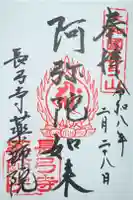 奉償
令和八年
二月二十八日
阿弥陀如来
長弓寺薬師院